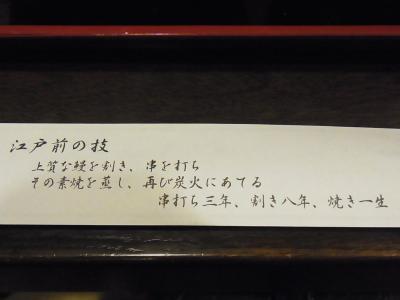 江戸前の技
上質な鰻を割き、串を打ち
その素焼を蒸し、再び炭火にあてる
串打ち三年、割き八年、焼き一生